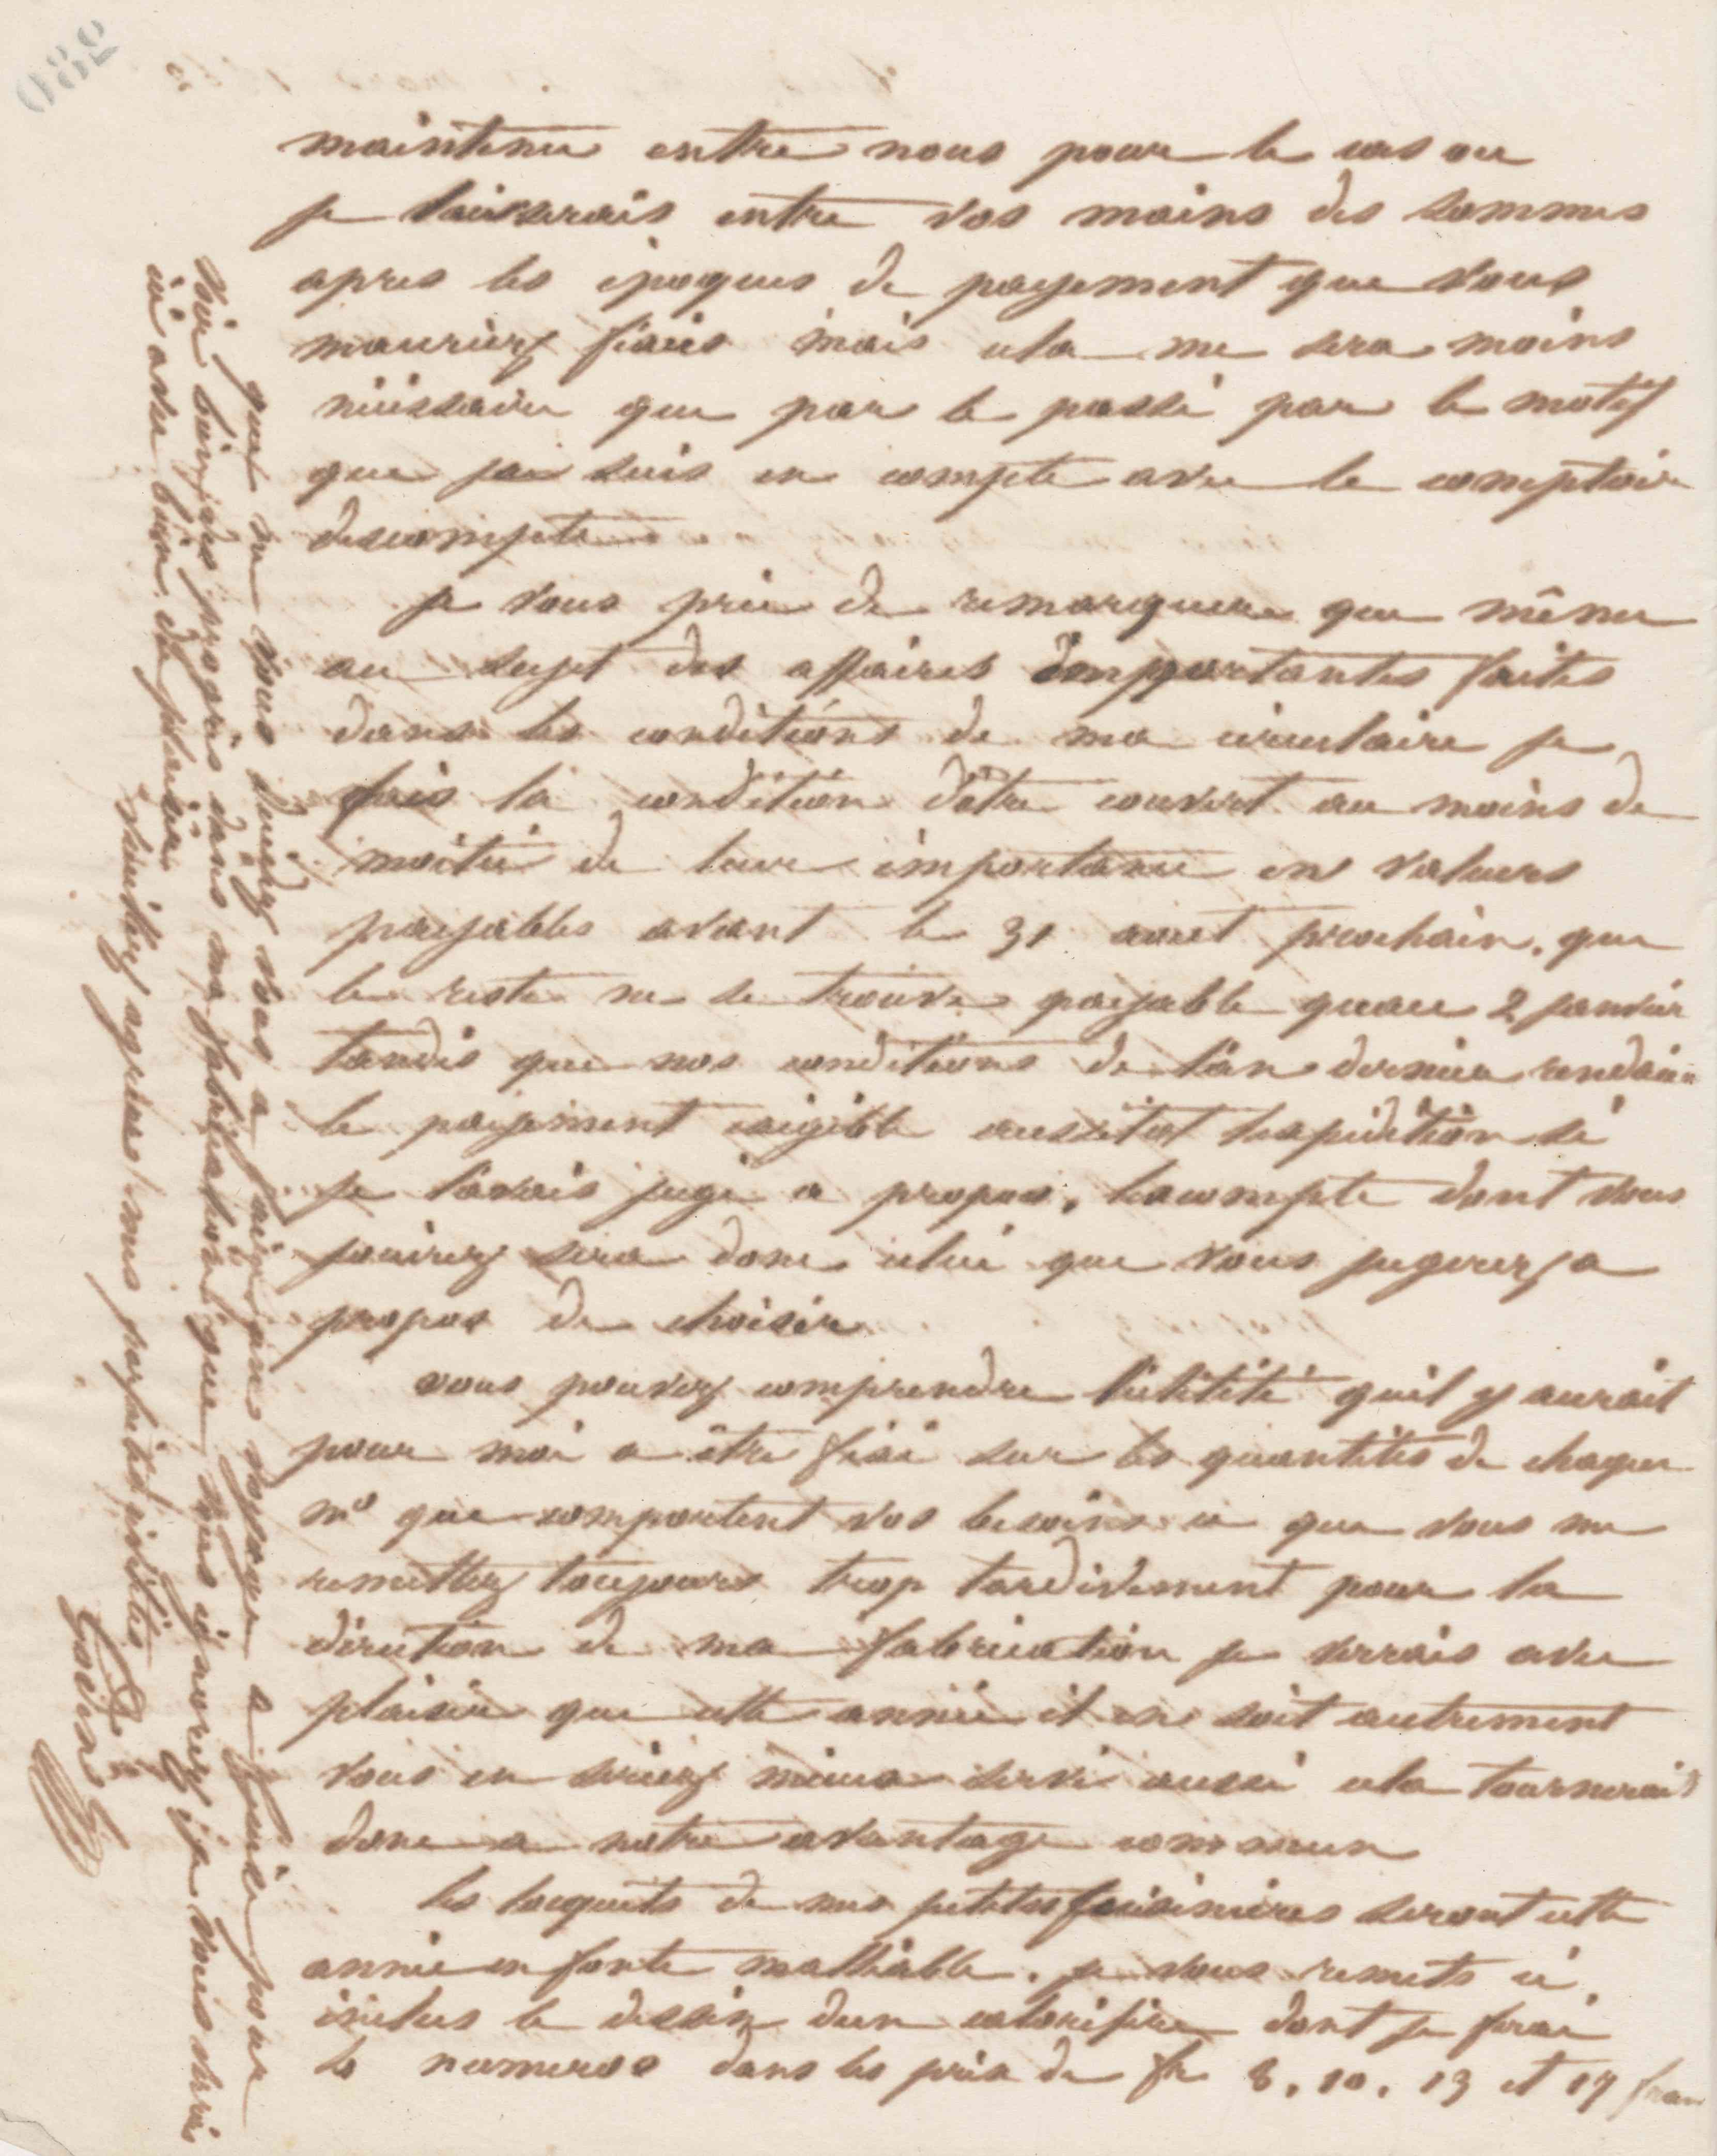 082
maintenu entre nous pour le cas ou
je laisserais entre vos mains des sommes
apres les époques de payement que vous
mauriez fixés mais cela me sera moins
nécéssaire que par le passé par le motif
que je suis en compte avec le comptoir
descompte
je vous prie de remarquer que même
au sujet des affaires importantes faites
dans les conditions de ma circulaire je
fais la condition dêtre couvert au moins de
moitié de leur importance en valeurs
payables avant le 31 aout prochain, que
le reste ne se trouve payable quau 2 janvier
tandis que nos conditions de lan dernier rendaien
le payement exigible aussitot lexpédition si
je lavais jugé a propos, lescompte dont vous
jouirez sera donc celui que vous jugerez a
propos de choisir
vous pouvez comprendre lutilité quil y aurait
pour moi a être fixé sur les quantités de chaque
no que comportent vos besoins ce que vous me
remettez toujours trop tardivement pour la
direction de ma fabrication je verrais avec
plaisir que cette année il en soit autrement
vous en seriez mieux servi aussi cela tournerait
donc a notre avantage commun
les loquets de mes petites cuisinières seront cette
année en fonte malléable. je vous remets ci
inclus le dessin dun calorifère dont je ferai
4 numeros dans les prix de fr 8, 10, 13 et 17 fran
que ne vous décidez vous a faire un voyage a Guise pour
voir bien des progrès dans ma fabrication que vous ignorez je vous verrai
ici avec bien du plaisir
veuillez agréer mes parfaites civilités
Godin